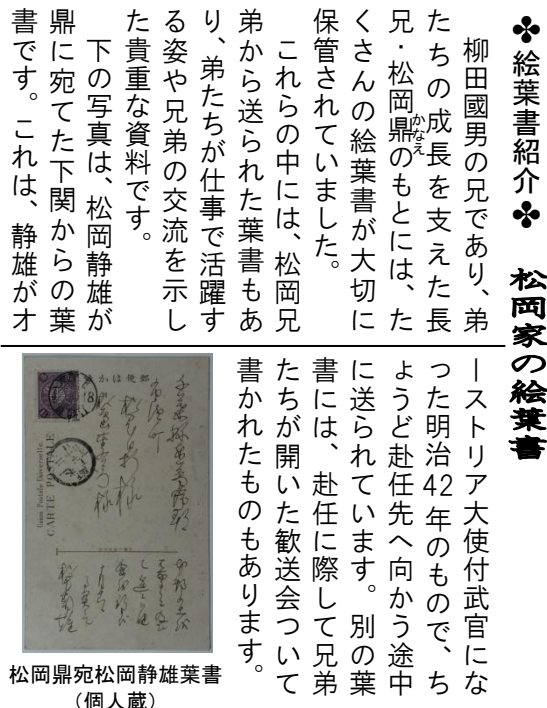 ✤絵葉書紹介✤ 松岡家の絵葉書
柳田國男の兄であり、弟
たちの成長を支えた長
兄・松岡鼎のもとには、た
かなえ
くさんの絵葉書が大切に
保管されていました。
これらの中には、松岡兄
弟から送られた葉書もあ
り、弟たちが仕事で活躍す
る姿や兄弟の交流を示し
た貴重な資料です。
下の写真は、松岡静雄が
鼎に宛てた下関からの葉
書です。これは、静雄がオ
ーストリア大使付武官にな
った明治42年のもので、ち
ょうど赴任先へ向かう途中
に送られています。別の葉
書には、赴任に際して兄弟
たちが開いた歓送会ついて
書かれたものもあります。
郵便はかき
Union Postale Universelle.
CARTE POSTALE
松岡鼎宛松岡静雄葉書
(個人蔵)